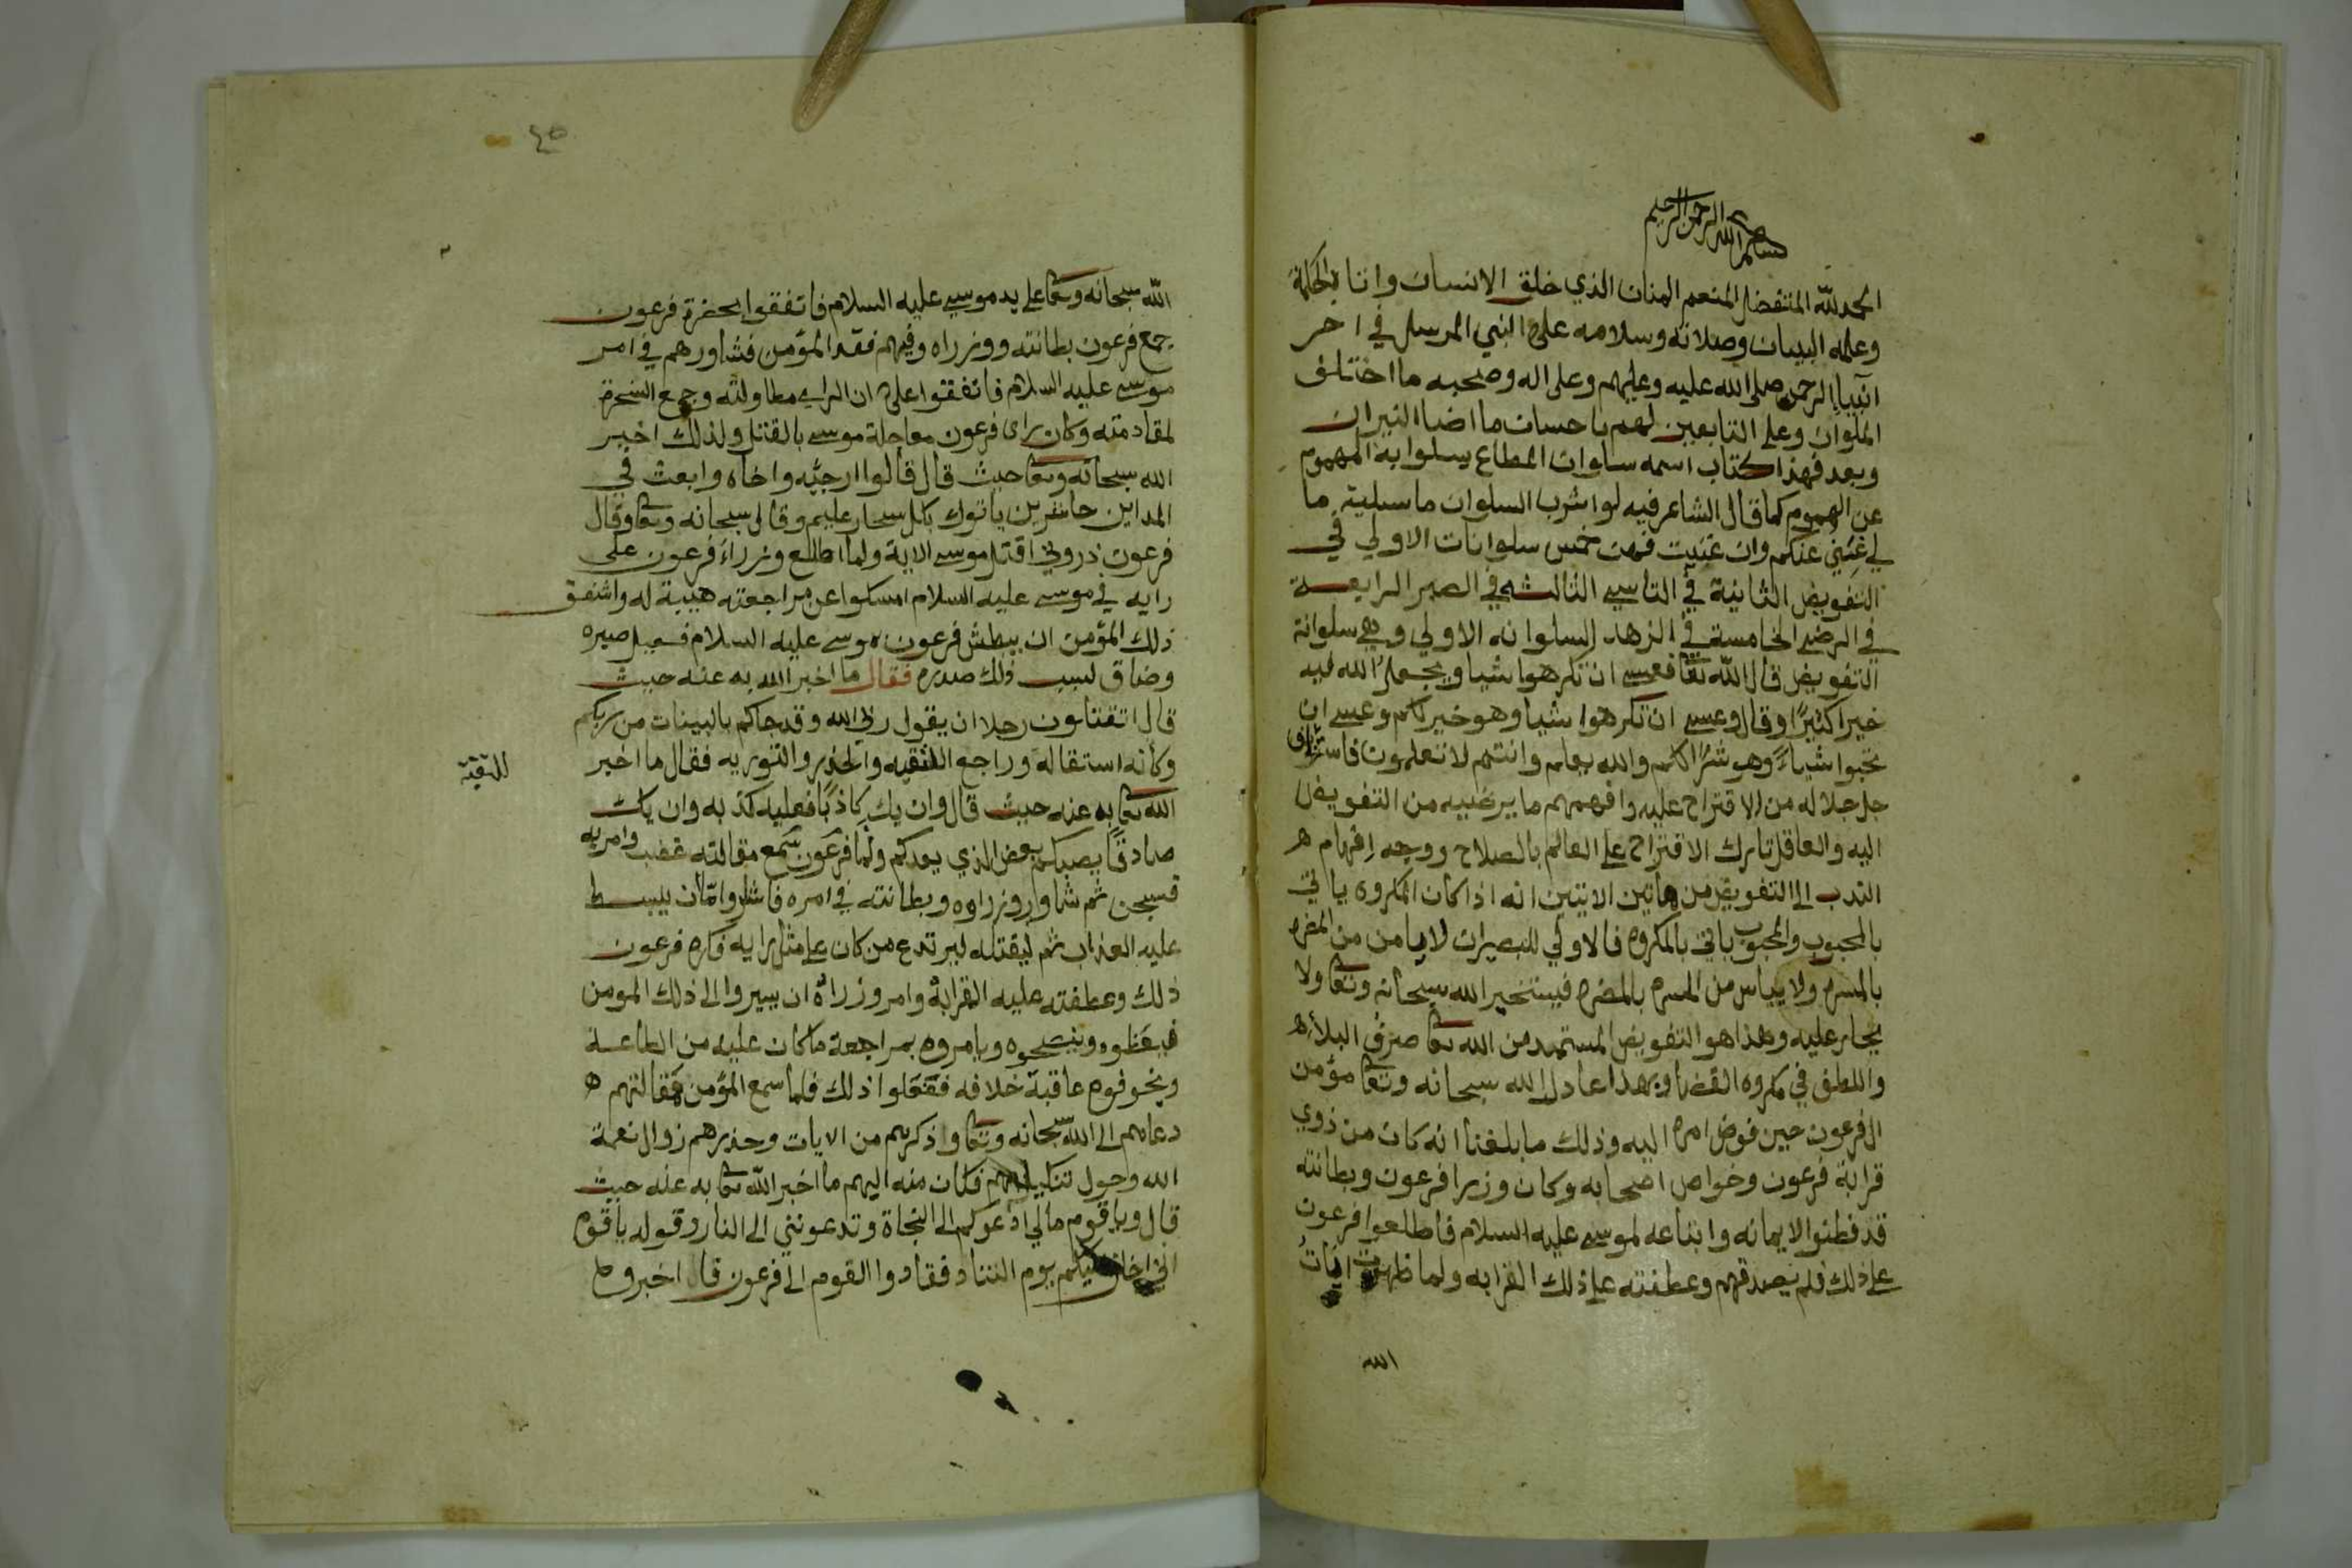 بسم الله الرحمن الرحيم
الحمد لله المتفضل المنعم المنان الذي خلق الانسان واتاه الحكمة
وعلمه البيان وصلاته وسلامه على النبي المرسل في اخر
انبياء الرحمن صلى الله عليه وعليهم وعلى اله وصحبه ما اختلف
الملوان وعلى التابعين لهم باحسان ما اضا النيران
وبعد فهذا كتاب اسمه سلوان المطاع يسلوا به المهموم
عن الهموم كما قال الشاعر فيه لو اشرب السلوان ما سليت ما
لي غنى عنكم وان غنيت فهن خمس سلوانات الاولي في
التفويض الثانية في التاسي الثالثه في الصبر الرابعة
في الرضى الخامسة في الزهد السلوانه الاولي وهي سلوانة
التفويض قال الله تعا فعسى ان تكرهوا شيا ويجعل الله فيه
خيرا كثيرا وقال وعسى ان تكرهوا شيا وهو خير لكم وعسى ان
تحبوا شياء وهو شر لكم والله يعلم وانتم لا تعلمون
جل جلاله من الاقتراح عليه وافهمهم ما يرضيه من التفويض
اليه والعاقل تارك الاقتراح على العالم بالصلاح ووجه افهام ه
الندب الى التفويض من هاتين الايتين انه اذا كان المكروه ياتي
بالمحبوب والمحبوب ياتي بالمكروه فالاولي للبصيران لا يامن من المضره
بالمسره ولا يياس من المسره بالمضره فيستخير الله سبحانه وتعا ولا
يختار عليه وهذا هو التفويض المستمد من الله تعا صرف البلاء ه
واللطف في مكروه القضا وبهذا عادل الله سبحانه وتعا مؤمن
ال فرعون حين فوض امره اليه وذلك ما بلغنا انه كان من ذوي
قرابة فرعون وخواص اصحابه وكان وزيرا فرعون وبطانته
قد فطنوا لايمانه واتباعه لموسى عليه السلام فاطلعوا فرعون
على ذلك فلم يصدقهم وعطفته على ذلك القرابه ولما ظهرت ايات
الله
٤٥
الله سبحانه وتعا على يد موسى عليه السلام فاتفقوا بحضرة فرعون
جمع فرعون بطانته ووزراه وفيهم فقد المؤمن فشاورهم في امر
موسى عليه السلام فاتفقوا على ان الراي مطاولته وجمع السحرة
لمقاومته وكان راى فرعون معاجلة موسى بالقتل ولذلك اخبر
الله سبحانه وتعا حيث قال قالوا ارجئه واخاه وابعث في
المداين حاشرين ياتوك بكل سحار عليم وقال سبحانه وتعا وقال
فرعون ذروني اقتل موسى الاية ولما اطلع وزراء فرعون على
رايه في موسى عليه السلام امسكوا عن مراجعته هيبة له واشفق
ذلك المؤمن ان يبطش فرعون بموسى عليه السلام فعيل صبره
وضاق لسبب ذلك صدره فقال ما اخبر الله به عنه حيث
قال اتقتلون رجلا ان يقول ربي الله وقد جاكم بالبينات من ربكم
وكانه استقاله وراجع التقيه والحذر والتوريه فقال ما اخبر
للتقية
الله تعا به عنه حيث قال وان يك كاذبا فعليه كذبه وان يك
صادقا يصبكم بعض الذي يعدكم ولما فرعون سمع مقالته غضب وامر به
فسجن ثم شاور وزراوه وبطانته في امره فاشاروا بان يبسط
عليه العذاب ثم ليقتله ليرتدع من كان على مثل رايه فكره فرعون
ذلك وعطفته عليه القرابة وامر وزراه ان يسيروا الى ذلك المومن
فيعظوه وينصحوه ويامروه بمراجعة ما كان عليه من الطاعة
ويخوفوه عاقبة خلافه ففعلوا ذلك فلما سمع المؤمن مقالتهم ه
دعاهم الى الله سبحانه وتعا واذكرهم من الايات وحذرهم زوال نعمة
الله وحول فكان منه اليهم ما اخبر الله تعا به عنه حيث
قال ويا قوم مالي ادعوكم الى النجاة وتدعونني الى النار وقوله يا قوم
اني اخاف عليكم يوم التناد فقادوا القوم الى فرعون قال اخبروه